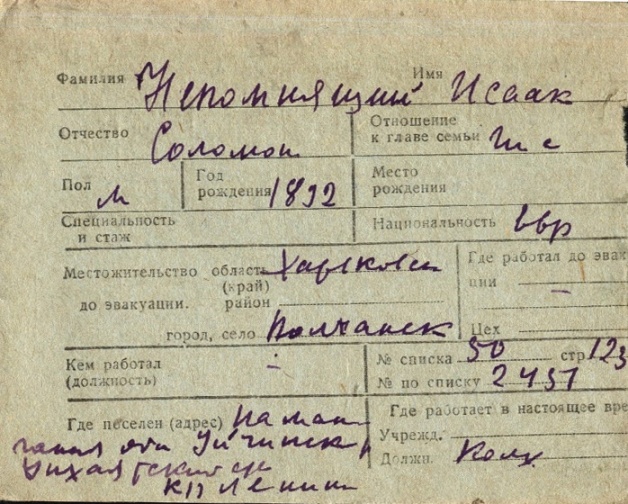 Фамилия Непомнящий Имя Исаак
Отчество Соломон Отношение к главе семьи
Пол м Год рождения 1892 Место рождения
Специальность и стаж Национальность евр
Местожительство область Харьковск Где работал до эвак
(край) ции —
до эвакуации. район
город, село Волчанск Цех
Кем работал № списка 50 стр 123
(должность) - № по списку 2437
Где поселен (адрес) Наман Где работает в настоящее вре
Уйчинск Учрежд.
Должн. Колх
кз Ленин